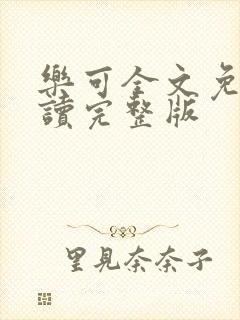 樂可全文免
讀完整版
里見奈奈子